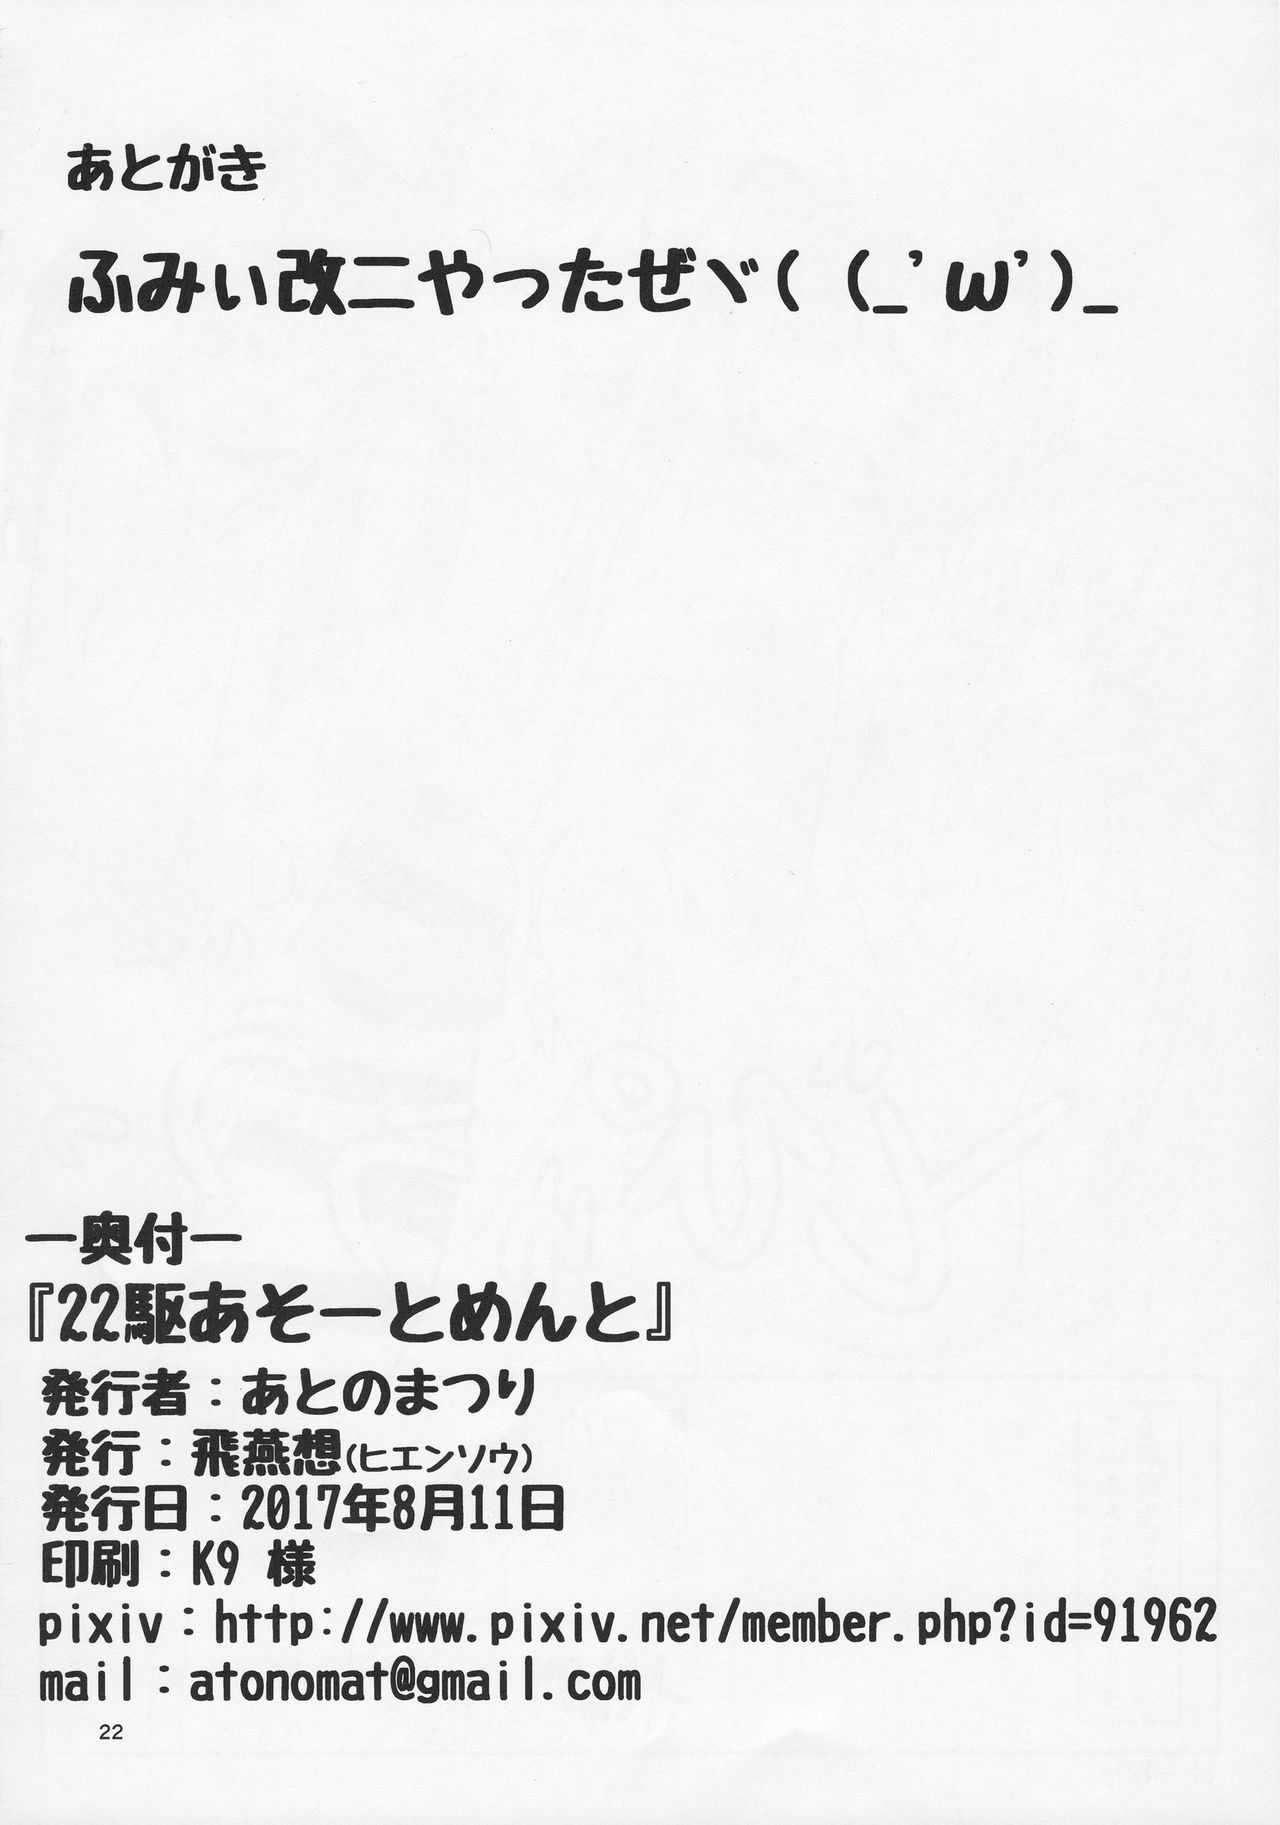 あとがき
ふみぃ改二やったぜヾ( (_'ω')_
―奥付―
『22駆あそーとめんと』
発行者：あとのまつり
発行：飛燕想(ヒエンソウ)
発行日：2017年8月11日
印刷：K9 様
pixiv：http://www.pixiv.net/member.php?id=91962
mail：atonomat@gmail.com
22